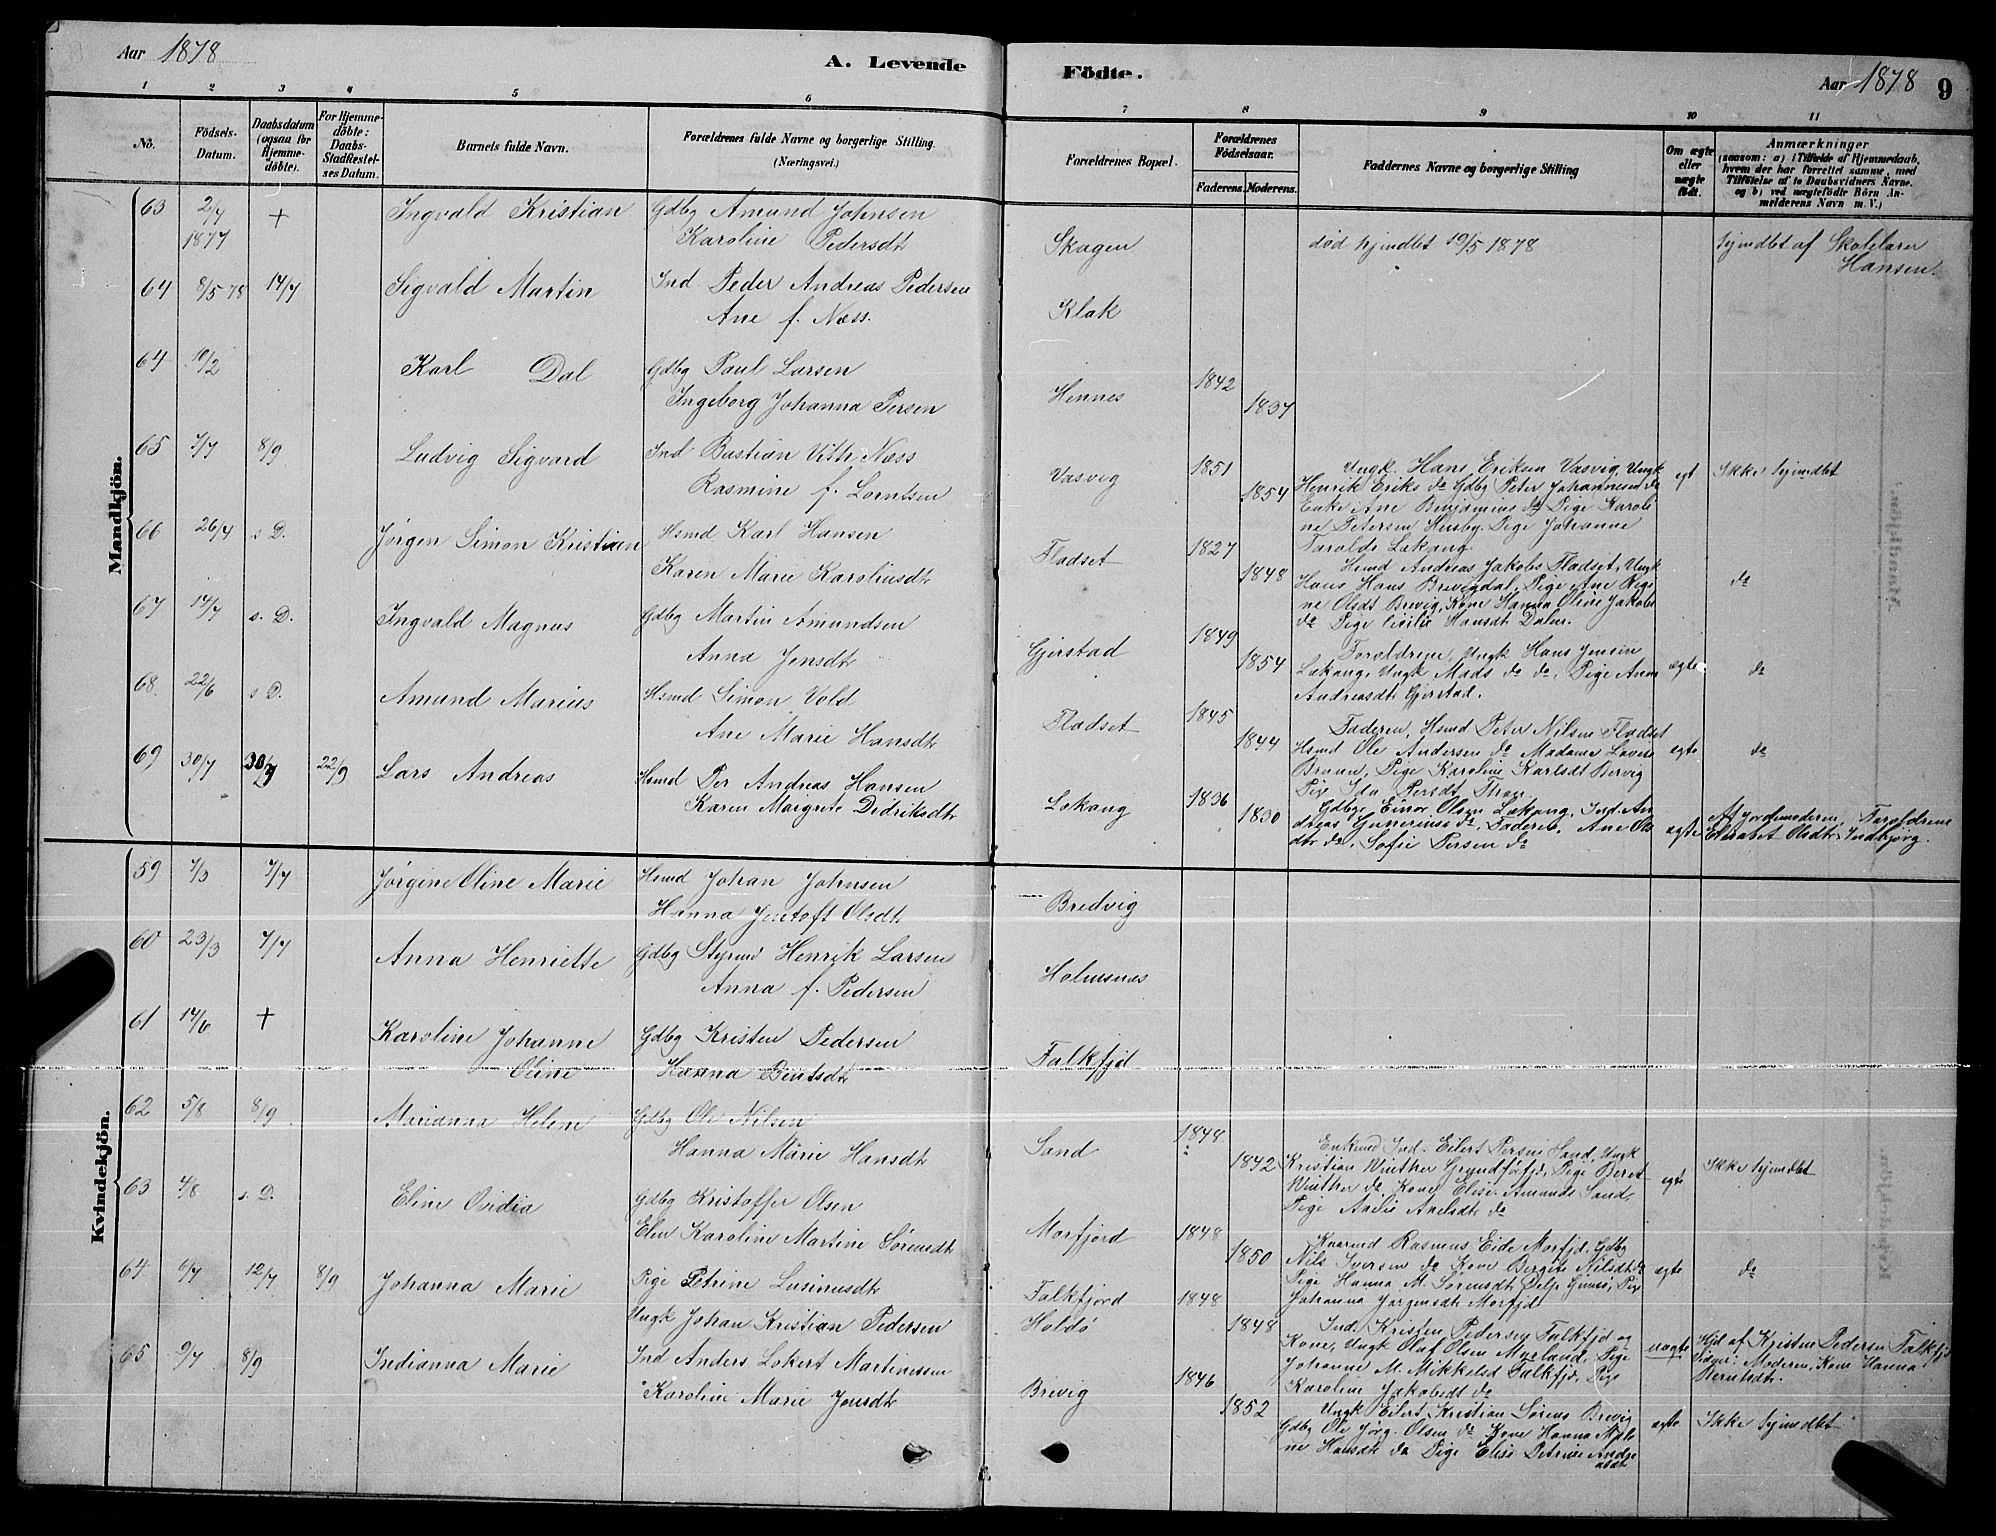 Aar 1878
A. Levende Födte.
Aar 1878 9
1 2 3 4 5 6 7 8 9 10 11
No.
Födsels-Datum.
Daabsdatum (ogsaa for Hjemme-döbte).
For Hjemme-döbte: Daabs-Stadfæstel-ses Datum.
Barnets fulde Navn.
Forældrenes fulde Navne og borgerlige Stilling. (Næringsvei.)
Forældrenes Bopæl.
Forældrenes Födselsaar.
Faderens. Moderens.
Faddernes Navne og borgerlige Stilling
Om ægte eller uægte födt.
Anmærkninger
(saasom: a) i Tilfælde af Hjemmedaab, hvem der har forrettet samme, med Tilföielse af to Daabsvidners Navne. og b) ved uægtefödte Börn An-melderens Navn m. V.)
Mandkjön.
63 2/7 1877 + Ingvald Kristian Gdbg Amund Johnsen
Karoline Pedersdt Skagen død hjmdbt 19/5 1878 hjmdbt af Skolelærer
Hansen.
64 8/5 78 14/7 Sigvald Martin Ind Peder Andreas Pedersen
Ane f. Næss. Klak
64 10/2 Karl Dal Gdbg Paul Larsen
Ingeborg Johanna Persen Hennes 1842 1837
65 7/7 8/9 Ludvig Sigvard Ind Bastian With Næss
Rasmine f. Lorntsen Vasvig 1851 1854
Ungk. Hans Eriksen Vasvig, Ungk
Henrik Eriks do Gdbg Peter Johannesen do
Enke Ane Benjamins do Pige Karoli
ne Petersen Husby. Pige Johanne
Tarolds Løkang
egt Ikke hjmdbt
66 26/7 s. D. Jørgen Simon Kristian Hsmd Karl Hansen
Karen Marie Karoliusdt Fladset 1827 1848
Hsmd Andreas Jakobs Fladset, Ungk
Hans Hans Brevigdal, Pige Ane Regi
ne Olsdt Brevig, Kone Hanna Oline Jakobs
do Pige Cicilie Hansdt Dalen.
do
67 14/7 s. D. Ingvald Magnus Gdbg Martin Amundsen
Anna Jensdt Gjerstad 1849 1854
Forældrene, Ungk Hans Jensen
Løkang, Ungk Mads do do, Pige Anna
Andreasdt Gjerstad.
ægte do
68. 22/6 s D. Amund Marius Hsmd Simon Vold
Ane Marie Hansdt Fladset 1845 1844
Faderen, Hsmd Peter Nilsen Fladset
Hsmd Ole Andersen do Madame Lavise
Bruun, Pige Karoline Karlsdt Bervig
Pige Ida Persdt
egte do
69 30/7 30/7 22/9 Lars Andreas Hsmd Per Andreas Hansen
Karen Margrete Didriksdt Løkang 1836 1830
Gdbge Einor Olsen Løkang, Ind. An
dreas Gunerius do, Faderen, Ane Ols
dtr do, Sofie Persen do
egte Af Jordemoderen, Forældrene
Elisabet Olsdtr Indbjörg.
Kvindekjön.
59 7/3 7/7 Jørgine Oline Marie Hsmd Johan Johnsen
Hanna Olsdt Bredvig
60 23/3 7/7 Anna Henriette Gdbg Styrmd Henrik Larsen
Anna f. Pedersen Holmsnes
61 14/6 + Karoline Johanne
Oline Gdbg Kristen Pedersen
Hanna Bentsdt Falkfjd
62 5/8 8/9 Marianna Helene Gdbg Ole Nilsen
Hanna Marie Hansdt Sand 1848 1842
Enkmd Ind. Eilert Persen Sand, Ungk
Kristian Winther Gryndførfjd, Pige Beret
Winther do, Kone Elise Amunds Sand
Pige do
egte Ikke hjmdbt
63 4/8 s. D. Eline Ovidia Gdbg Kristoffer Olsen
Elen Karoline Martine Sørensdt Morfjord 1848 1850
Kaarmd Rasmus Eide Morfjd, Gdbg
Nils Iversen do Kone Bergite Nilsdt do
Pige Hanna M. Sørensdt Delp Gimsø, Pige
Johanna Jørgensdt Morfjd
egte do
64 6/7 12/7 8/9 Johanna Marie Pige Petrine Lusinusdt
Ungk Johan Kristian Pedersen Falkfjord
Holdö 1848 1848
Ind. Kristen Pedersen Falkfjd og
Kone, Ungk Olaf Olsen Myrland, Pige
Johanne M. Mikkelsd Falkfjd, Pige
Karoline Jakobsdt do
uægte Hjd af Kristen Pedersen Falkfjd
Vidner: Moderen, Kone Hanna
Berntsdt.
65 9/7 8/9 Indianna Marie Ind Anders Lokert Martinussen
Karoline Marie Jensdt Brevig 1846 1852
Ungk Eilert Kristian Sørens Brevig
Gdbg Ole Jørg. Olsen do Kone Hanna
ne Hansdt do Pige Elise Petrine Andre
asdt
egte Ikke hjmdbt